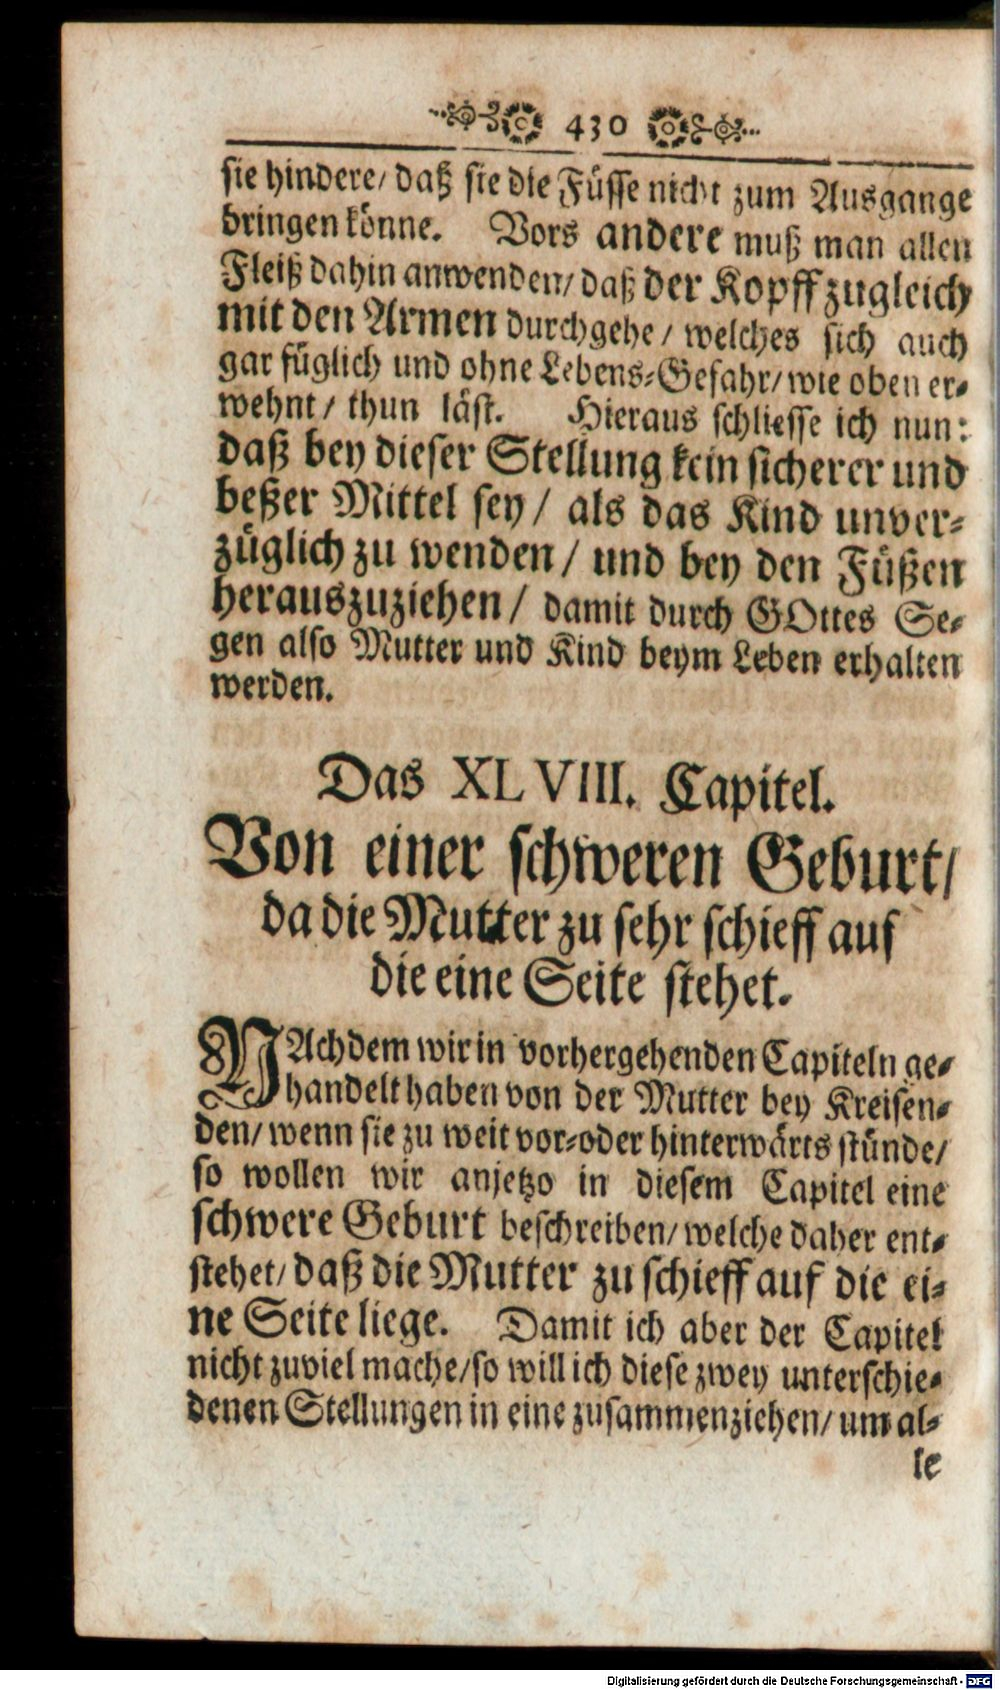 430
sie hindere/ daß sie die Füsse nicht zum Ausgange
bringen könne. Vors andere muß man allen
Fleiß dahin anwenden/ daß der Kopff zugleich
mit den Armen durchgehe / welches sich auch
gar füglich und ohne Lebens-Gefahr/ wie oben er-
wehnt / thun läst. Hieraus schliesse ich nun:
daß bey dieser Stellung kein sicherer und
beßer Mittel sey / als das Kind unver-
züglich zu wenden / und bey den Füßen
herauszuziehen / damit durch GOttes Se-
gen also Mutter und Kind beym Leben erhalten
werden.
Das XLVIII. Capitel.
Von einer schweren Geburt/
da die Mutter zu sehr schieff auf
die eine Seite stehet.
NAchdem wir in vorhergehenden Capiteln ge-
handelt haben von der Mutter bey Kreisen-
den/ wenn sie zu weit vor-oder hinterwärts stünde/
so wollen wir anjetzo in diesem Capitel eine
schwere Geburt beschreiben/ welche daher ent-
stehet/ daß die Mutter zu schieff auf die ei-
ne Seite liege. Damit ich aber der Capitel
nicht zuviel mache/ so will ich diese zwey unterschie-
denen Stellungen in eine zusammenziehen/ um al-
le
Digitalisierung gefördert durch die Deutsche Forschungsgemeinschaft - DFG